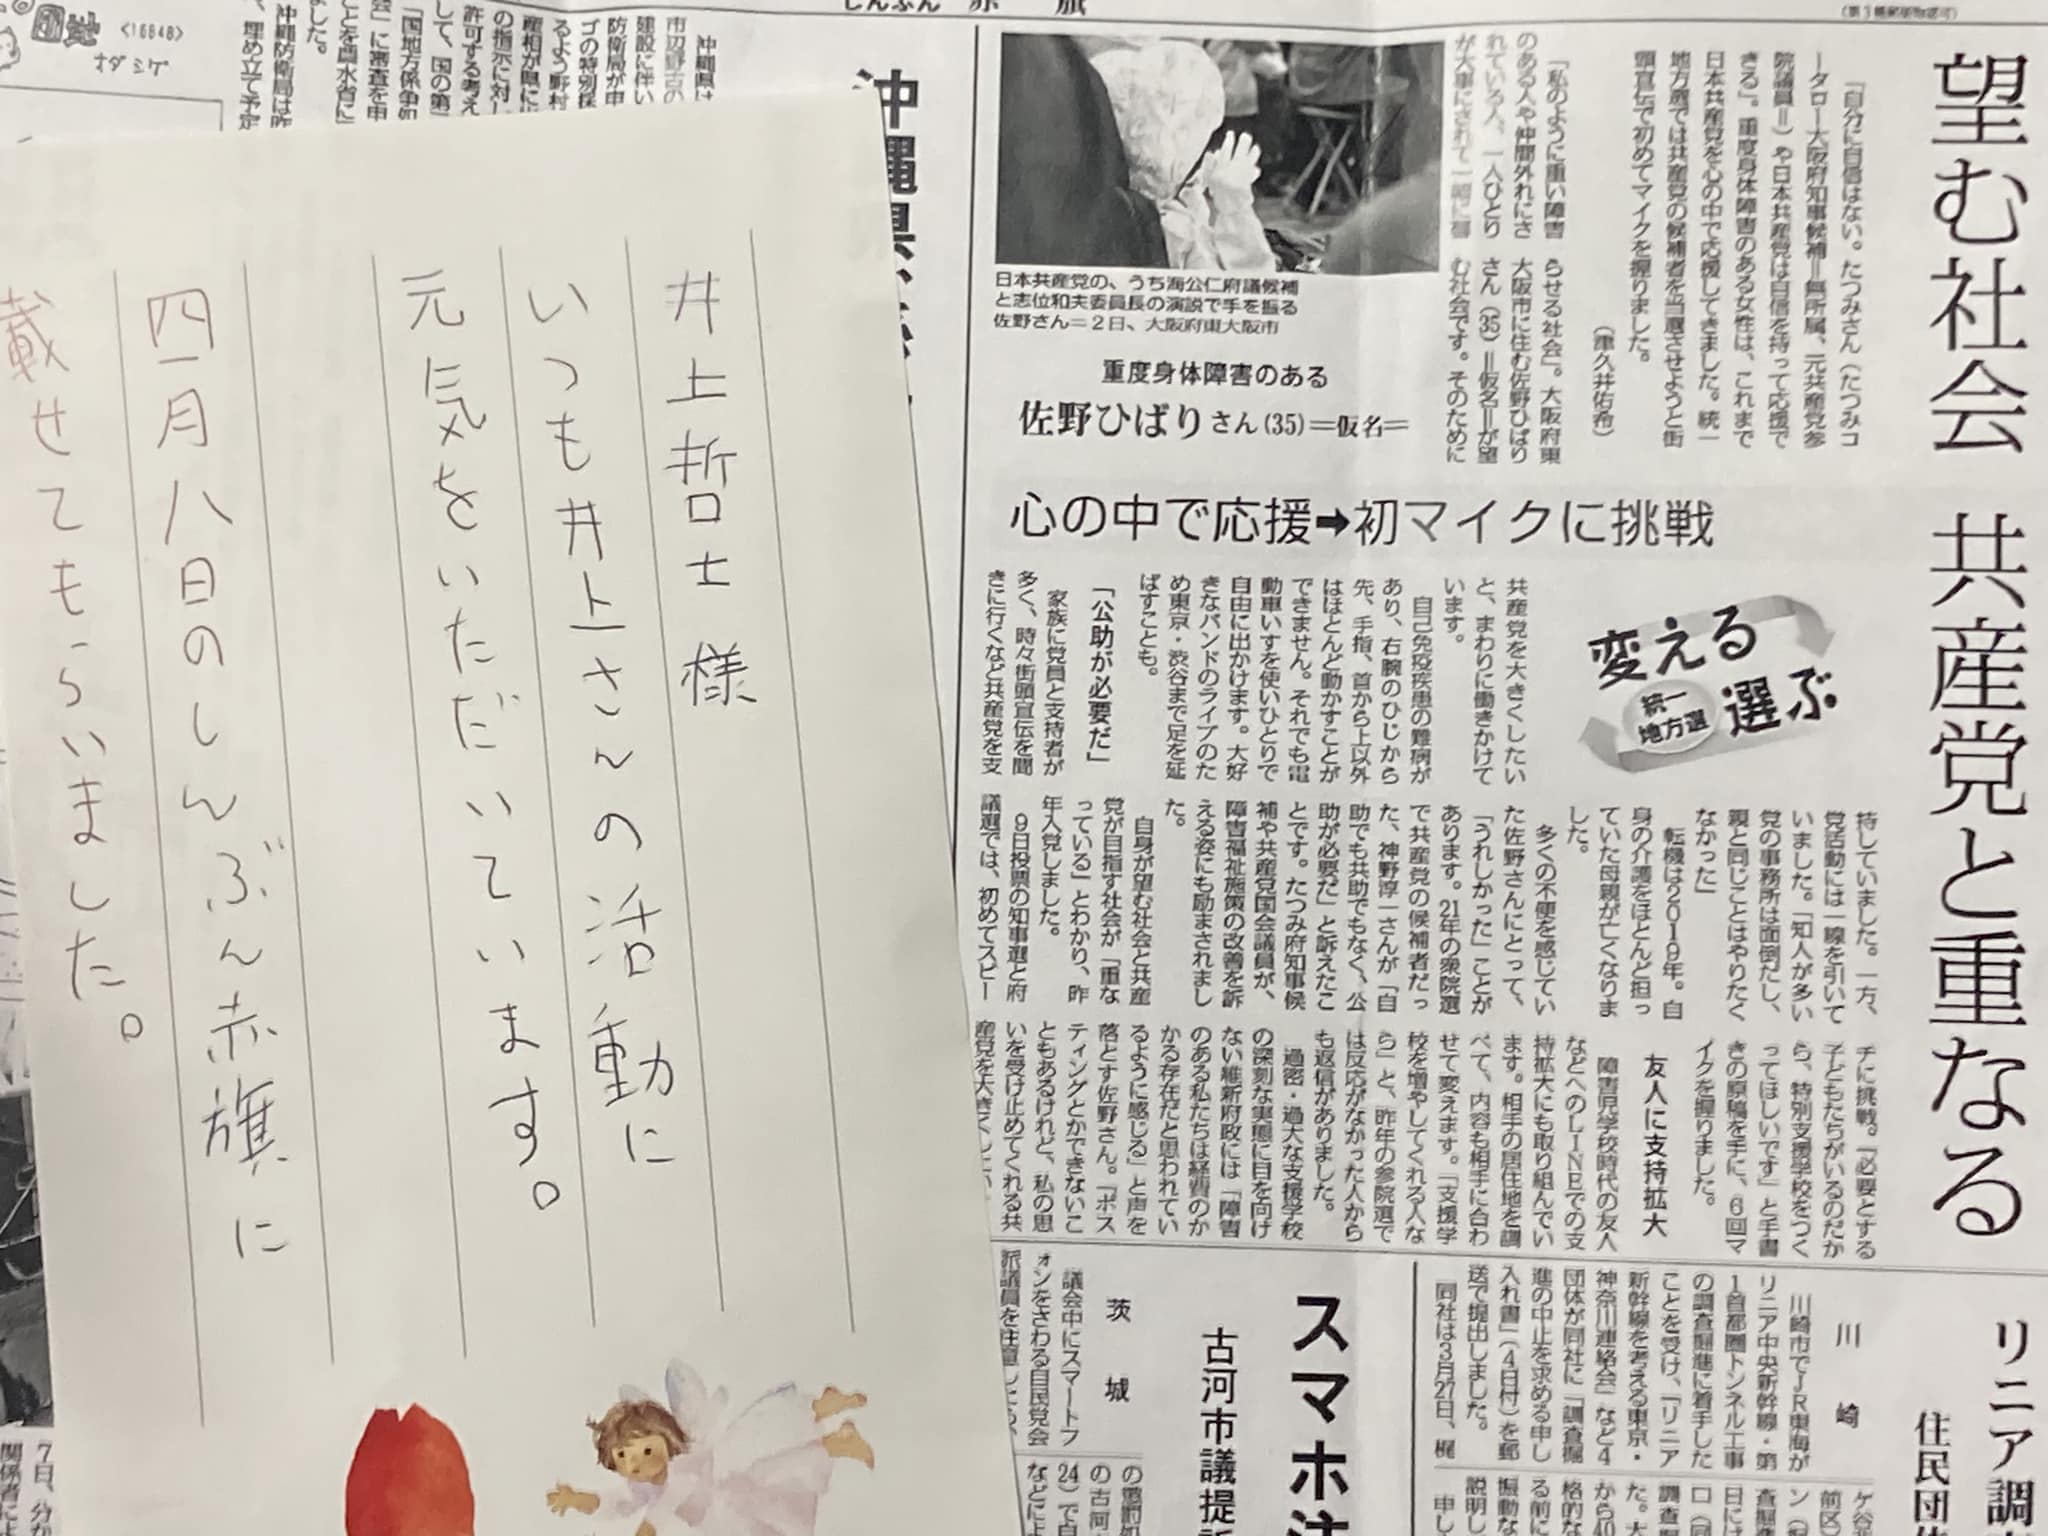 井上哲士 様
いつも井上さんの活動に
元気をいただいています。
四月八日のしんぶん赤旗に
載せてもらいました。
<1664B>
オダ シゲ
しんぶん 赤 旗
(第3種郵便物認可)
望む社会 共産党と重なる
「自分に自信はない。たつみさん(たつみコ
ータロー大阪府知事候補=無所属、元共産党参
院議員=)や日本共産党は自信を持って応援で
きる」。重度身体障害のある女性は、これまで
日本共産党を心の中で応援してきました。統一
地方選では共産党の候補者を当選させようと街
頭宣伝で初めてマイクを握りました。
(津久井佑希)
「私のように重い障害
のある人や仲間外れにさ
れている人、一人ひとり
が大事にされて一緒に暮
らせる社会」。大阪府東
大阪市に住む佐野ひばり
さん(35)=仮名=が望
む社会です。そのために
日本共産党の、うち海公仁府議候補
と志位和夫委員長の演説で手を振る
佐野さん=2日、大阪府東大阪市
重度身体障害のある
佐野ひばりさん(35)=仮名=
心の中で応援➡初マイクに挑戦
変える
選ぶ
統一
地方選
共産党を大きくしたい
と、まわりに働きかけて
います。
自己免疫疾患の難病が
あり、右腕のひじから
先、手指、首から上以外
はほとんど動かすことが
できません。それでも電
動車いすを使いひとりで
自由に出かけます。大好
きなバンドのライブのた
め東京・渋谷まで足を延
ばすことも。
「公助が必要だ」
家族に党員と支持者が
多く、時々街頭宣伝を聞
きに行くなど共産党を支
持していました。一方、
党活動には一線を引いて
いました。「知人が多い
党の事務所は面倒だし、
親と同じことはやりたく
なかった」
転機は2019年。自
身の介護をほとんど担っ
ていた母親が亡くなりま
した。
多くの不便を感じてい
た佐野さんにとって、
「うれしかった」ことが
あります。21年の衆院選
で共産党の候補者だっ
た、神野淳一さんが「自
助でも共助でもなく、公
助が必要だ」と訴えたこ
とです。たつみ府知事候
補や共産党国会議員が、
障害福祉施策の改善を訴
える姿にも励まされまし
た。
自身が望む社会と共産
党が目指す社会が「重な
っている」とわかり、昨
年入党しました。
9日投票の知事選と府
議選では、初めてスピー
チに挑戦。「必要とする
子どもたちがいるのだか
ら、特別支援学校をつく
ってほしいです」と手書
きの原稿を手に、6回マ
イクを握りました。
友人に支持拡大
障害児学校時代の友人
などへのLINEでの支
持拡大にも取り組んでい
ます。相手の居住地を調
べて、内容も相手に合わ
せて変えます。「支援学
校を増やしてくれる人な
ら」と、昨年の参院選で
は反応がなかった人から
も返信がありました。
過密・過大な支援学校
の深刻な実態に目を向け
ない維新府政には「障害
のある私たちは経費のか
かる存在だと思われてい
るように感じる」と声を
落とす佐野さん。「ポス
ティングとかできないこ
ともあるけれど、私の思
いを受け止めてくれる共
産党を大きくしたい
沖縄県
沖縄県は
市辺野古の
建設に伴い
防衛局が申
ゴの特別採
るよう野村
産相が県に
の指示に対し
許可する考え
して、国の第三
「国地方係争処
会」に審査を申
ことを農水省に
ました。
沖縄防衛局は昨
、埋め立て予定
リニア調
住民団体
川崎
川崎市でJR東海が
リニア中央新幹線・第
1首都圏トンネル工事
の調査掘進に着手した
ことを受け、「リニア
新幹線を考える東京・
神奈川連絡会」など4
団体が同社に「調査掘
進の中止を求める申し
入れ書」(4日付)を郵
送で提出しました。
同社は3月27日、梶
スマホ
古河市議提訴
茨城
議会中にスマートフ
ォンをさわる自民党会
派議員を注意したら、
7日、分か
関係者によ